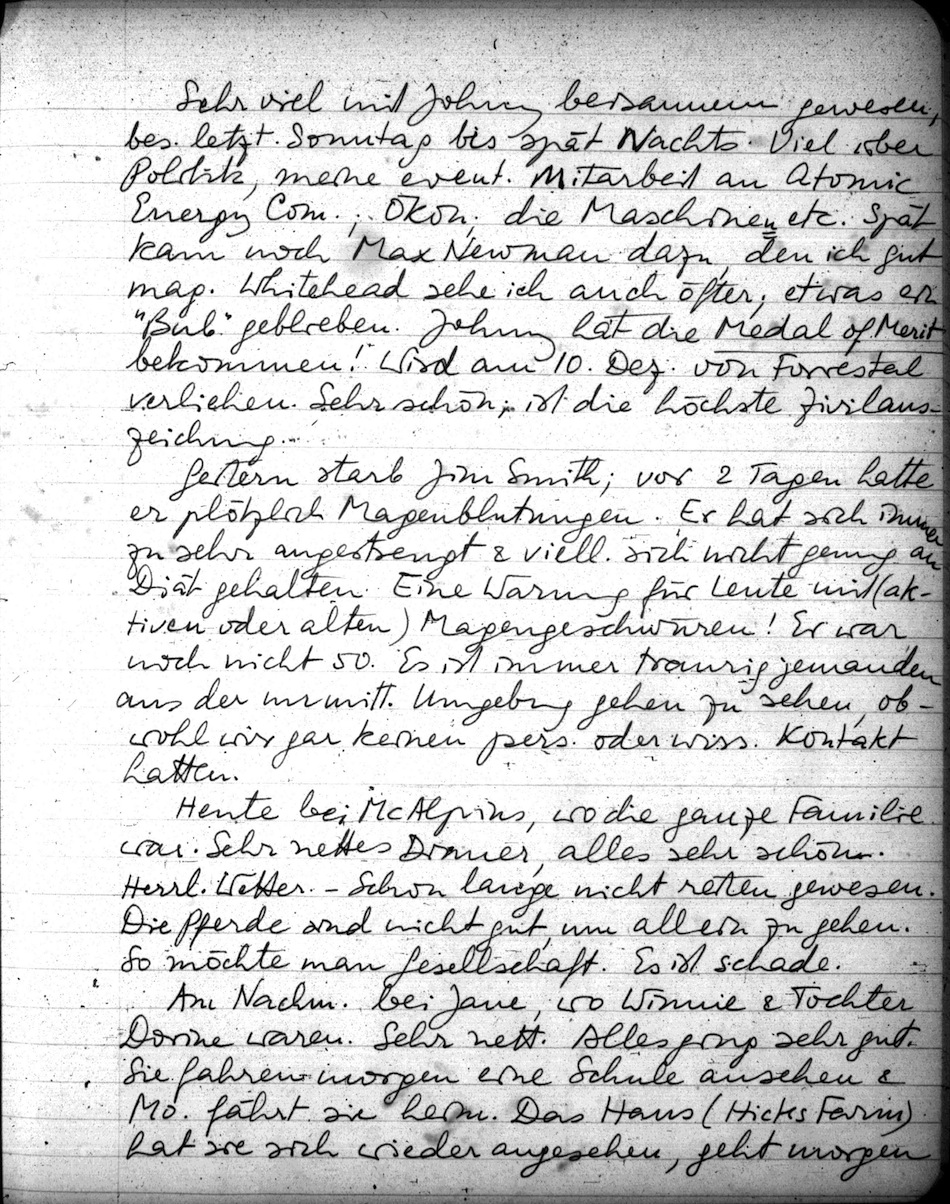 Sehr viel mit Johnny beisammen gewesen,
bes. letzt. Sonntag bis spät Nachts. Viel über
Politik, meine event. Mitarbeit an Atomic
Energy Com., Ökon., die Maschinen etc. Spät
kam noch Max Newman dazu, den ich gut
mag. Whitehead sehe ich auch öfter, etwas ein
"Bub" geblieben. Johnny hat die Medal of Merit
bekommen! Wird am 10. Dez. von Forrestal
verliehen. Sehr schön, ist die höchste Zivilaus-
zeichnung.
Gestern starb Jim Smith; vor 2 Tagen hatte
er plötzlich Magenblutungen. Er hat sich immer
zu sehr angestrengt & viell. sich nicht genug an
Diät gehalten. Eine Warnung für Leute mit (ak-
tiven oder alten) Magengeschwüren! Er war
noch nicht 50. Es ist immer traurig jemanden
aus der unmitt. Umgebung gehen zu sehen, ob-
wohl wir gar keinen pers. oder wiss. Kontakt
hatten.
Heute bei McAlpins, wo die ganze Familie
war. Sehr nettes Dinner, alles sehr schön.
Herrl. Wetter. – Schon lange nicht reiten gewesen.
Die Pferde sind nicht gut, um allein zu gehen.
So möchte man Gesellschaft. Es ist schade.
Am Nachm. bei Jane, wo Winnie & Tochter
Dorine waren. Sehr nett. Alles ging sehr gut.
Sie fahren morgen eine Schule ansehen &
Mo. fährt sie heim. Das Haus (Hicks Farm)
hat sie sich wieder angesehen, geht morgen